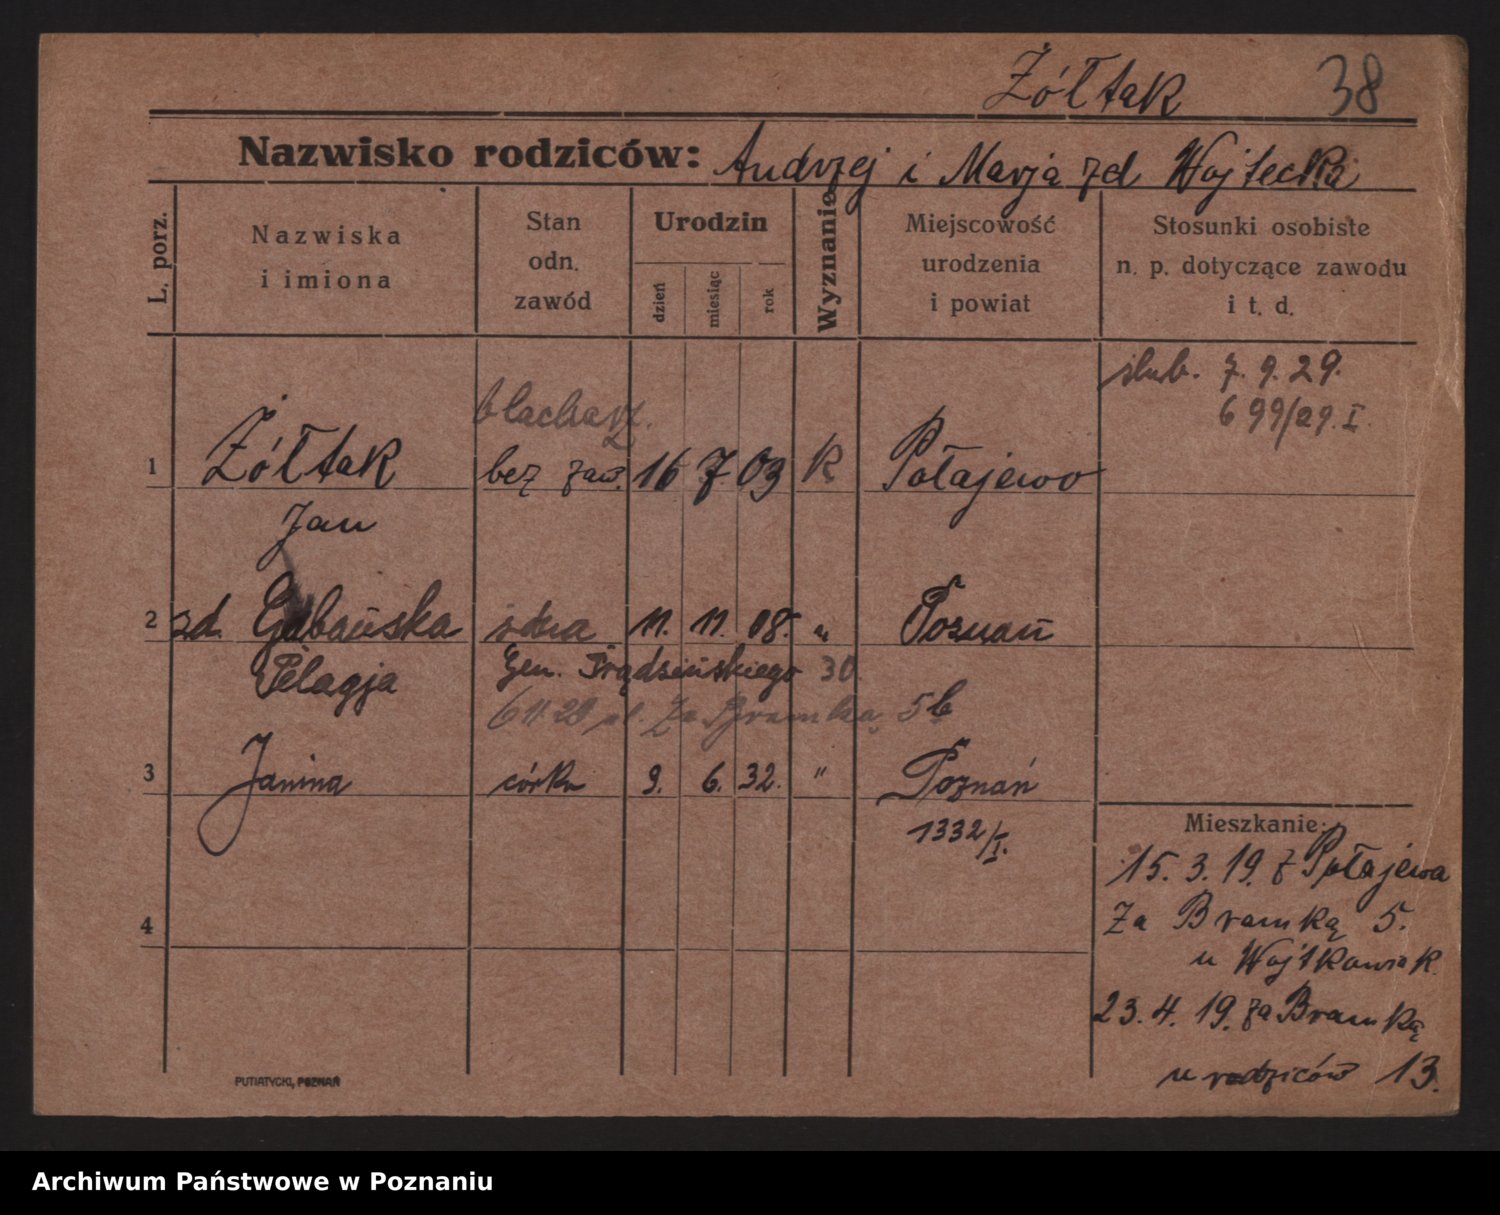 Żółtak 38
Nazwisko rodziców: Andrzej i Marja zd Wojtecka
L. porz.
Nazwiska
i imiona
Stan
odn.
zawód
Urodzin
dzień miesiąc rok
Wyznanie
Miejscowość
urodzenia
i powiat
Stosunki osobiste
n. p. dotyczące zawodu
i t. d.
ślub. 7. 9. 29.
699/29. I.
blacharz.
1 Żółtak bez zaw. 16 7 03 K Połajewo
Jan
2 zd. 11. 11. 08. " Poznań
Pelagja Gen. Prądzyńskiego 30
6 11 29 ul. Za Bramką 5b
3 Janina córka 9. 6. 32. " Poznań
1332/I.
4
Mieszkanie:
15. 3. 19. z Połajewa
Za Bramką 5.
u Wojtkowiak
23. 4. 19. za Bramką
u rodziców 13.
PUTIATYCKI, POZNAŃ
Archiwum Państwowe w Poznaniu